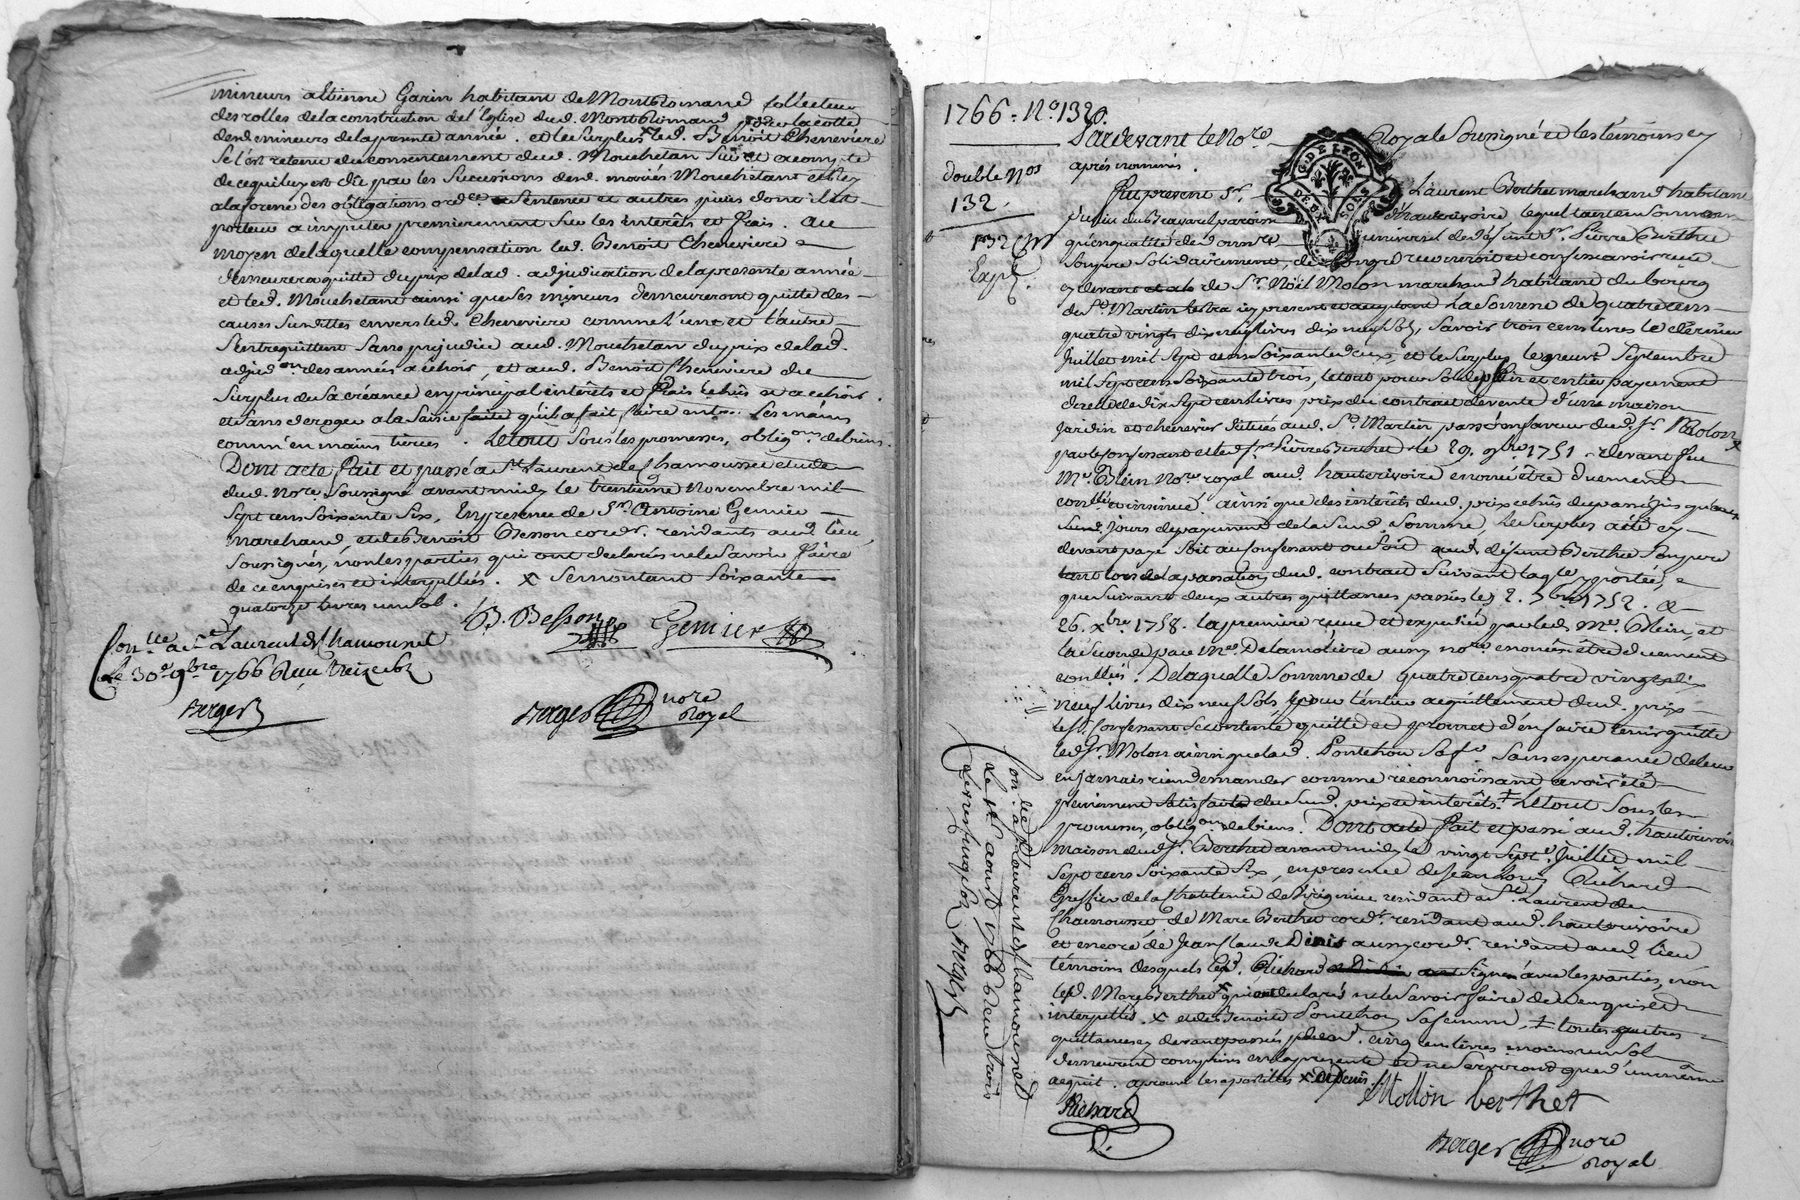 mineurs a Etienne Garin habitant de Montromand collecteur
des rolles de la construction de l'Eglise dud. Montromand pour la cotte
desd. mineurs de la presente année. et le surplus led. Benoit Chenevière
se l'est retenu du consentement dud. Mouchetan
de ce qui luy est dû par les successions desd. mariés Mouchetant et luy
a la forme des obligations ordce. sentence et autres pièces dont il est
porteur a imputer premierement sur les interêts et frais. au
moyen de laquelle compensation led. Benoit Cheneviere
demeurera quitte du prix de lad. adjudication de la presente année
et led. Mouchetant ainsi que ses mineurs demeureront quitte des
causes susdittes envers led. Cheneviere comme l'une et l'autre
s'entrequittent sans prejudice aud. Mouchetan du prix de lad.
adjudon. des années a échoir, et aud. Benoit Cheneviere du
surplus de sa créance en principal interêts et frais échus et a echoir.
et sans deroger a la saisie faitte qu'il a fait faire entre ses mains
comm'en mains tierces. Le tout sous les promesses, obligons. de biens.
Dont acte fait et passé a St. Laurent de Chamousset etude
dud. nore. soussigné avant midy le trentieme novembre mil
sept cens soixante six, en presence de Sr. Antoine Genier
marchand, et de Benoit Besson cordr. residants aud. lieu,
soussignés, non les parties qui ont declarés ne le savoir faire
de ce enquises et interpellées. x se montant soixante
quatorze livres un sol.
B. Besson Genier
Con.lle a St. Laurent de Chamousset
Le 30e 9bre 1766 Reçu treize sols
Berger
Berger nore
Royal
1766. No. 132.
Pardevant le Nore. Royal Soussigné et les témoins cy
après nommés.
double nos
132.
132
Exp.
G. DE LYON
DEUX SOLS
Fut present Sr. Laurent Berthet marchand habitant
d'hauterivoire lequel tant en son nom
qu'en qualité de donnre universel de défunt Sr. Pierre Berthet
son pere solidairement, de son gré reconnoit et confesse avoir reçu
cy devant et ab. de Sr. Noël Molon marchand habitant du bourg
de St. Martin Lestra icy present et acceptant La somme de quatre cens
quatre vingts dix neuf livres dix neuf sols, savoir trois cens livres le dernier
Juillet mil sept cens soixante deux, et le surplus le neuf Septembre
mil sept cens soixante trois, le tout pour solde plein et entier payement
de celle de dix sept cens livres prix du contrat de vente d'une maison
Jardin et chenevier situés aud. St. Martin passé en faveur dud. Sr. Molon
par le confessant et led. Sr. Pierre Berthet le 29. 9bre 1751. devant feu
Me. Blein nore royal aud. hauterivoire enoncé être duement
conllé et insinué ainsi que des interêts dud. prix échus
jours de payement de la susd. somme Le surplus a été cy
devant payé soit au confessant ou soit aud. défunt Berthet son pere
tant lors de la passation dud. contrat suivant l'acte y porté,
que suivant deux autres quittances passées les 2. 7bre 1752. &
26. xbre 1758. la premiere reçue et expediée par led. Me. Blein, et
la seconde par Me. Delamolière aussy nore enoncées être duement
conllées. De laquelle somme de quatre cens quatre vingt dix
neuf livres dix neuf sols pour l'entier acquittement dud. prix
led. Sr. confessant se contente quitte et promet d'en faire tenir quitte
led. Sr. Molon ainsi que lad. Ponchon sa fe. sans esperance de leur
en jamais rien demander comme reconnoissant avoir été
pleinement satisfaits du susd. prix et interêts. ‡ Le tout sous les
promesses, obligons. de biens. Dont acte fait et passé aud. hauterivoire
maison dud. Sr. Berthet avant midy le vingt sept. Juillet mil
sept cens soixante six, en presence de Jean Louis Richard
Greffier de la Chatelenie de residant a St. Laurent de
Chamousset de Marc Berthet cordr. residant aud. hauterivoire
et encore de Jean Claude Denis aussy cordr. residant aud. lieu
témoins desquels led. Richard signé avec les parties, non
led. Marc Berthet x qui ont declarés ne le savoir faire de ce enquis et
interpellés. x et de Benoite Ponchon sa femme, ‡ toutes quittes
quittances cy devant passées cinq cens livres moins un sol
demeurent comprises en la presente et ne serviront que d'un même
acquit. aprouvé les apostilles x et Denis.
Richard Mollon berthet
Berger nore
Royal
Con.lle a St. Laurent de Chamousset
Le aoust 1766 Reçu trois
livres cinq sols Berger